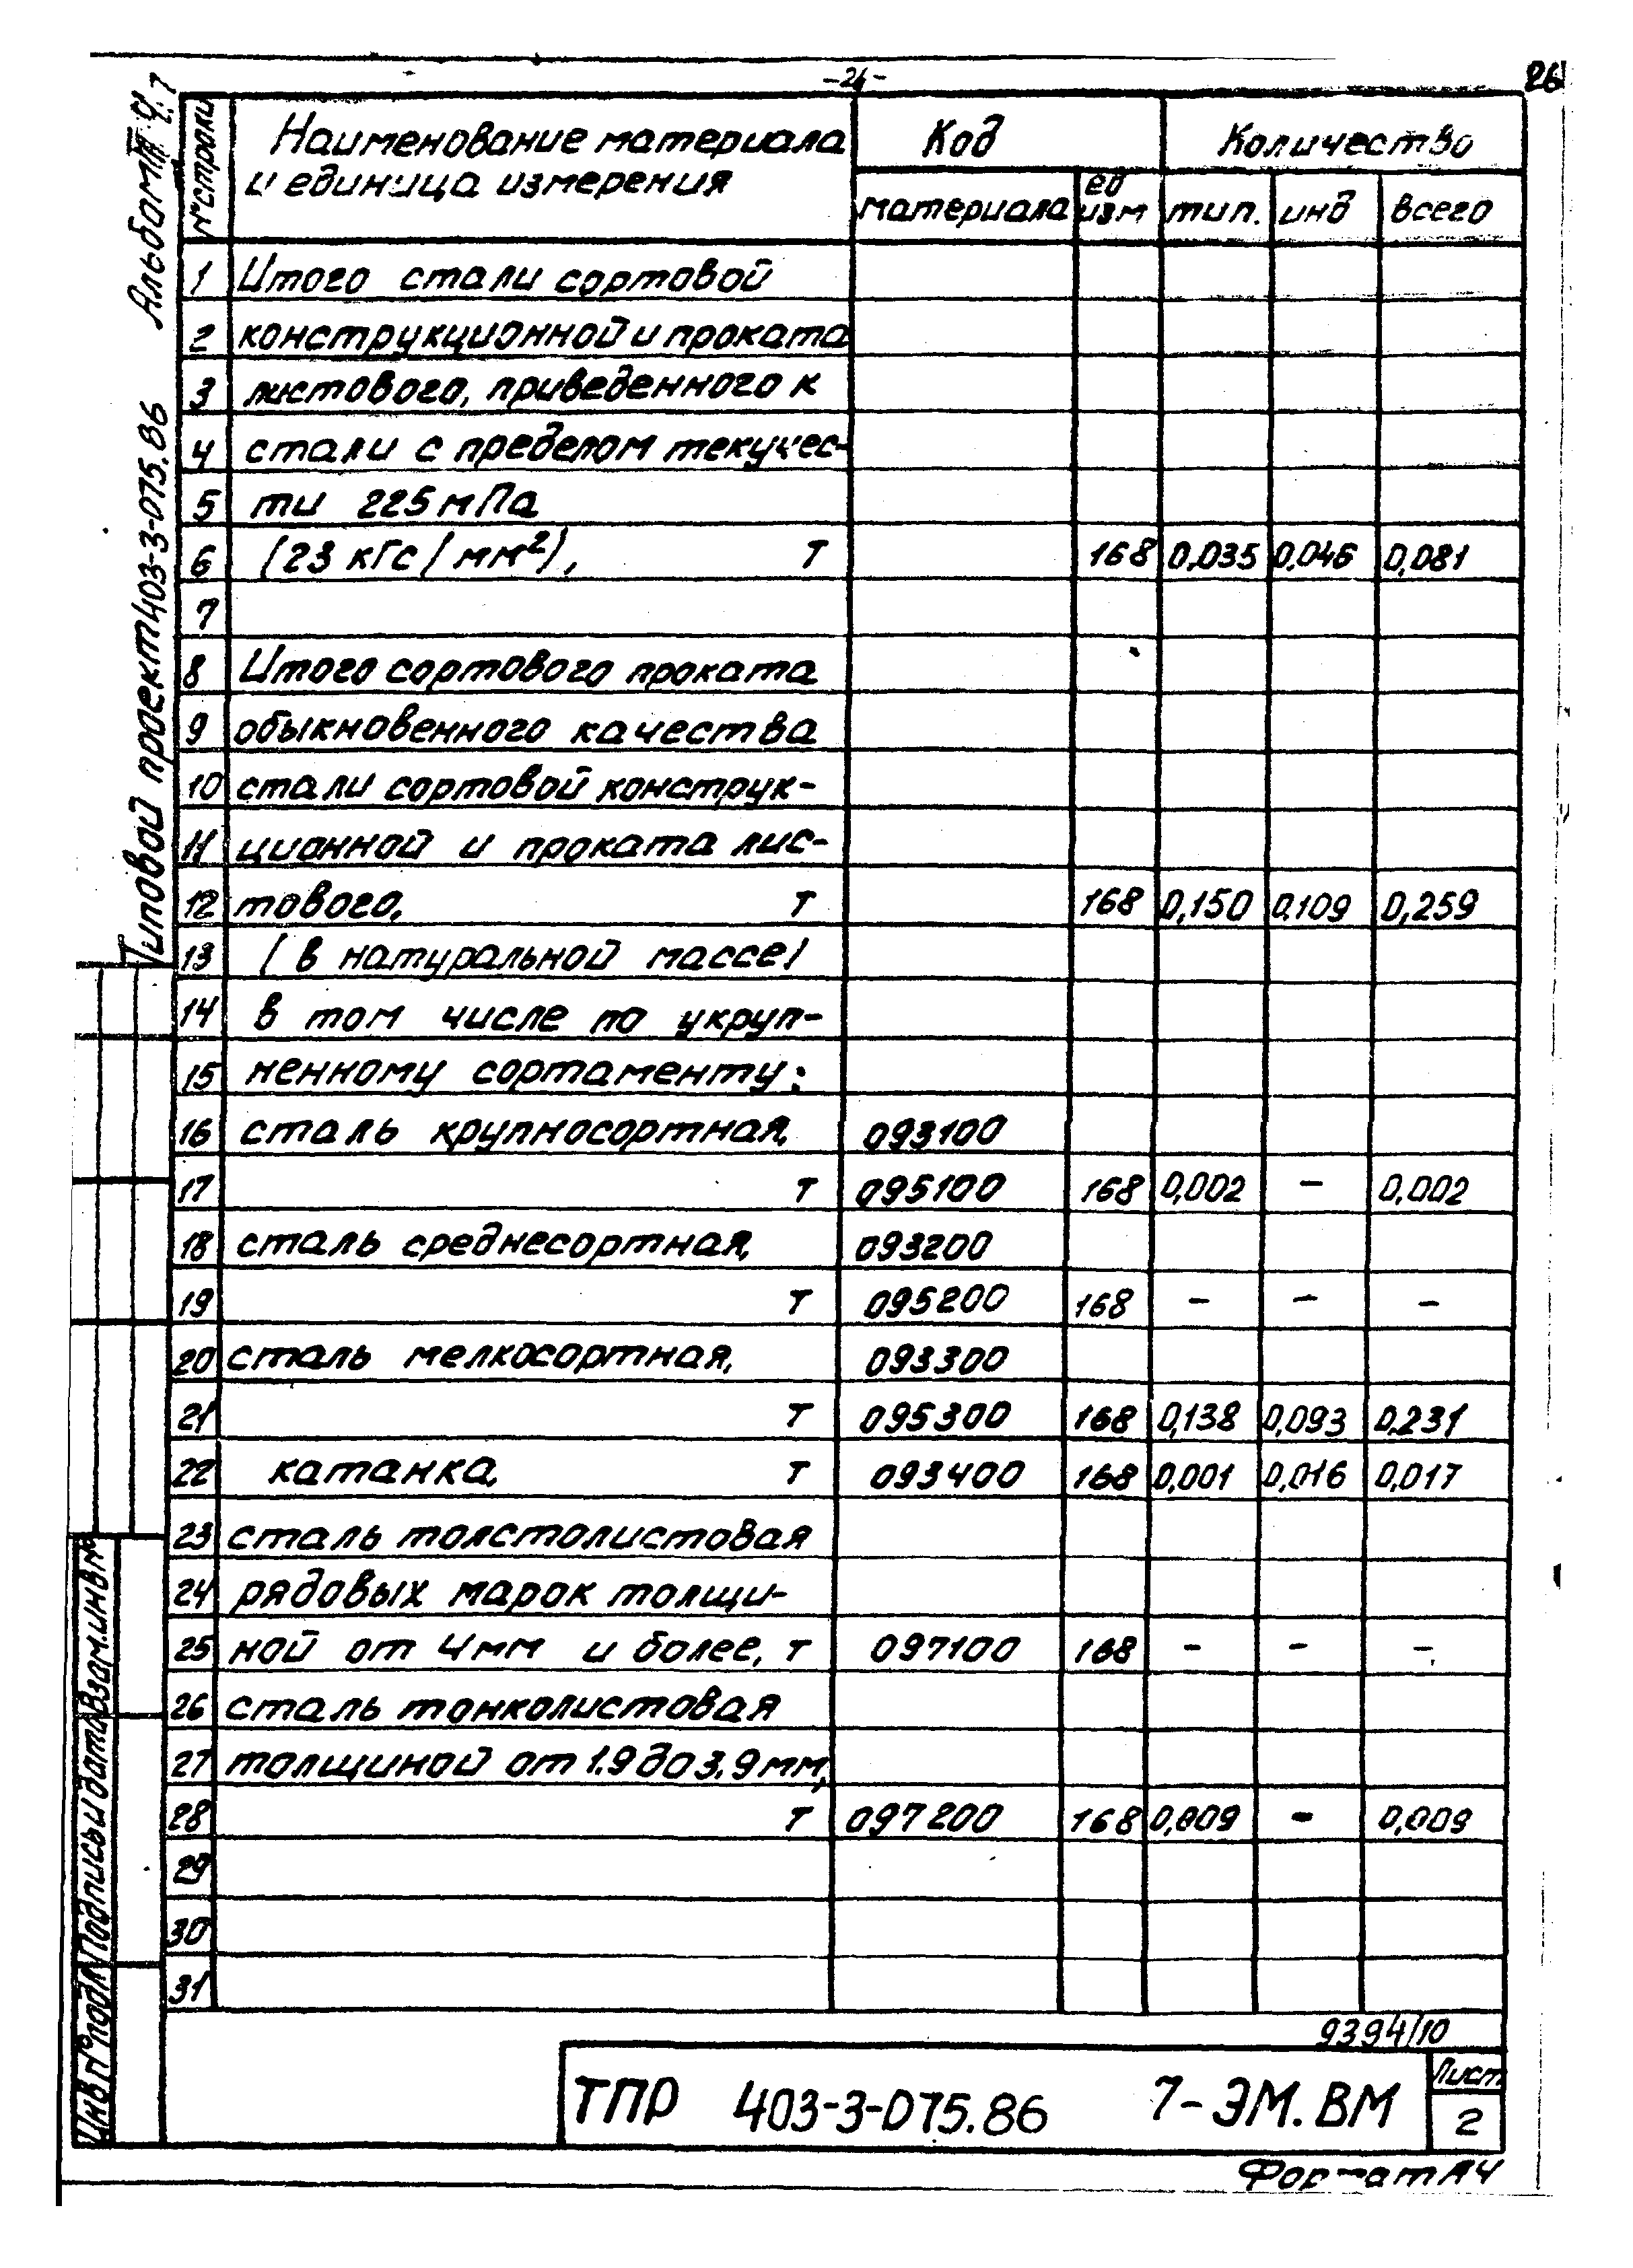 -26-
26
Альбом III ч.7
Типовой проект 403-3-075.86
№ строки
Наименование материала
и единица измерения
Код
Количество
материала
ед
изм
тип.
инд
всего
1 Итого стали сортовой
2 конструкционной и проката
3 листового, приведенного к
4 стали с пределом текучес-
5 ти 225 мПа
6 (23 кГс/мм²), Т 168 0,035 0,046 0,081
7
8 Итого сортового проката
9 обыкновенного качества
10 стали сортовой конструк-
11 ционной и проката лис-
12 тового, т 168 0,150 0.109 0,259
13 (в натуральной массе)
14 в том числе по укруп-
15 ненному сортаменту:
16 сталь крупносортная, 093100
17 т 095100 168 0,002 - 0,002
18 сталь среднесортная, 093200
19 т 095200 168 - - -
20 сталь мелкосортная, 093300
21 т 095300 168 0,138 0,093 0,231
22 катанка, т 093400 168 0,001 0,016 0,017
23 сталь толстолистовая
24 рядовых марок толщи-
25 ной от 4мм и более, т 097100 168 - - -
26 сталь тонколистовая
27 толщиной от 1.9 до 3.9 мм,
28 т 097200 168 0,009 - 0,009
29
30
31
Взам.инв№
Подпись и дата
Инв№ подл
9394/10
ТПР 403-3-075.86 7-ЭМ.ВМ
Лист
2
Формат А4